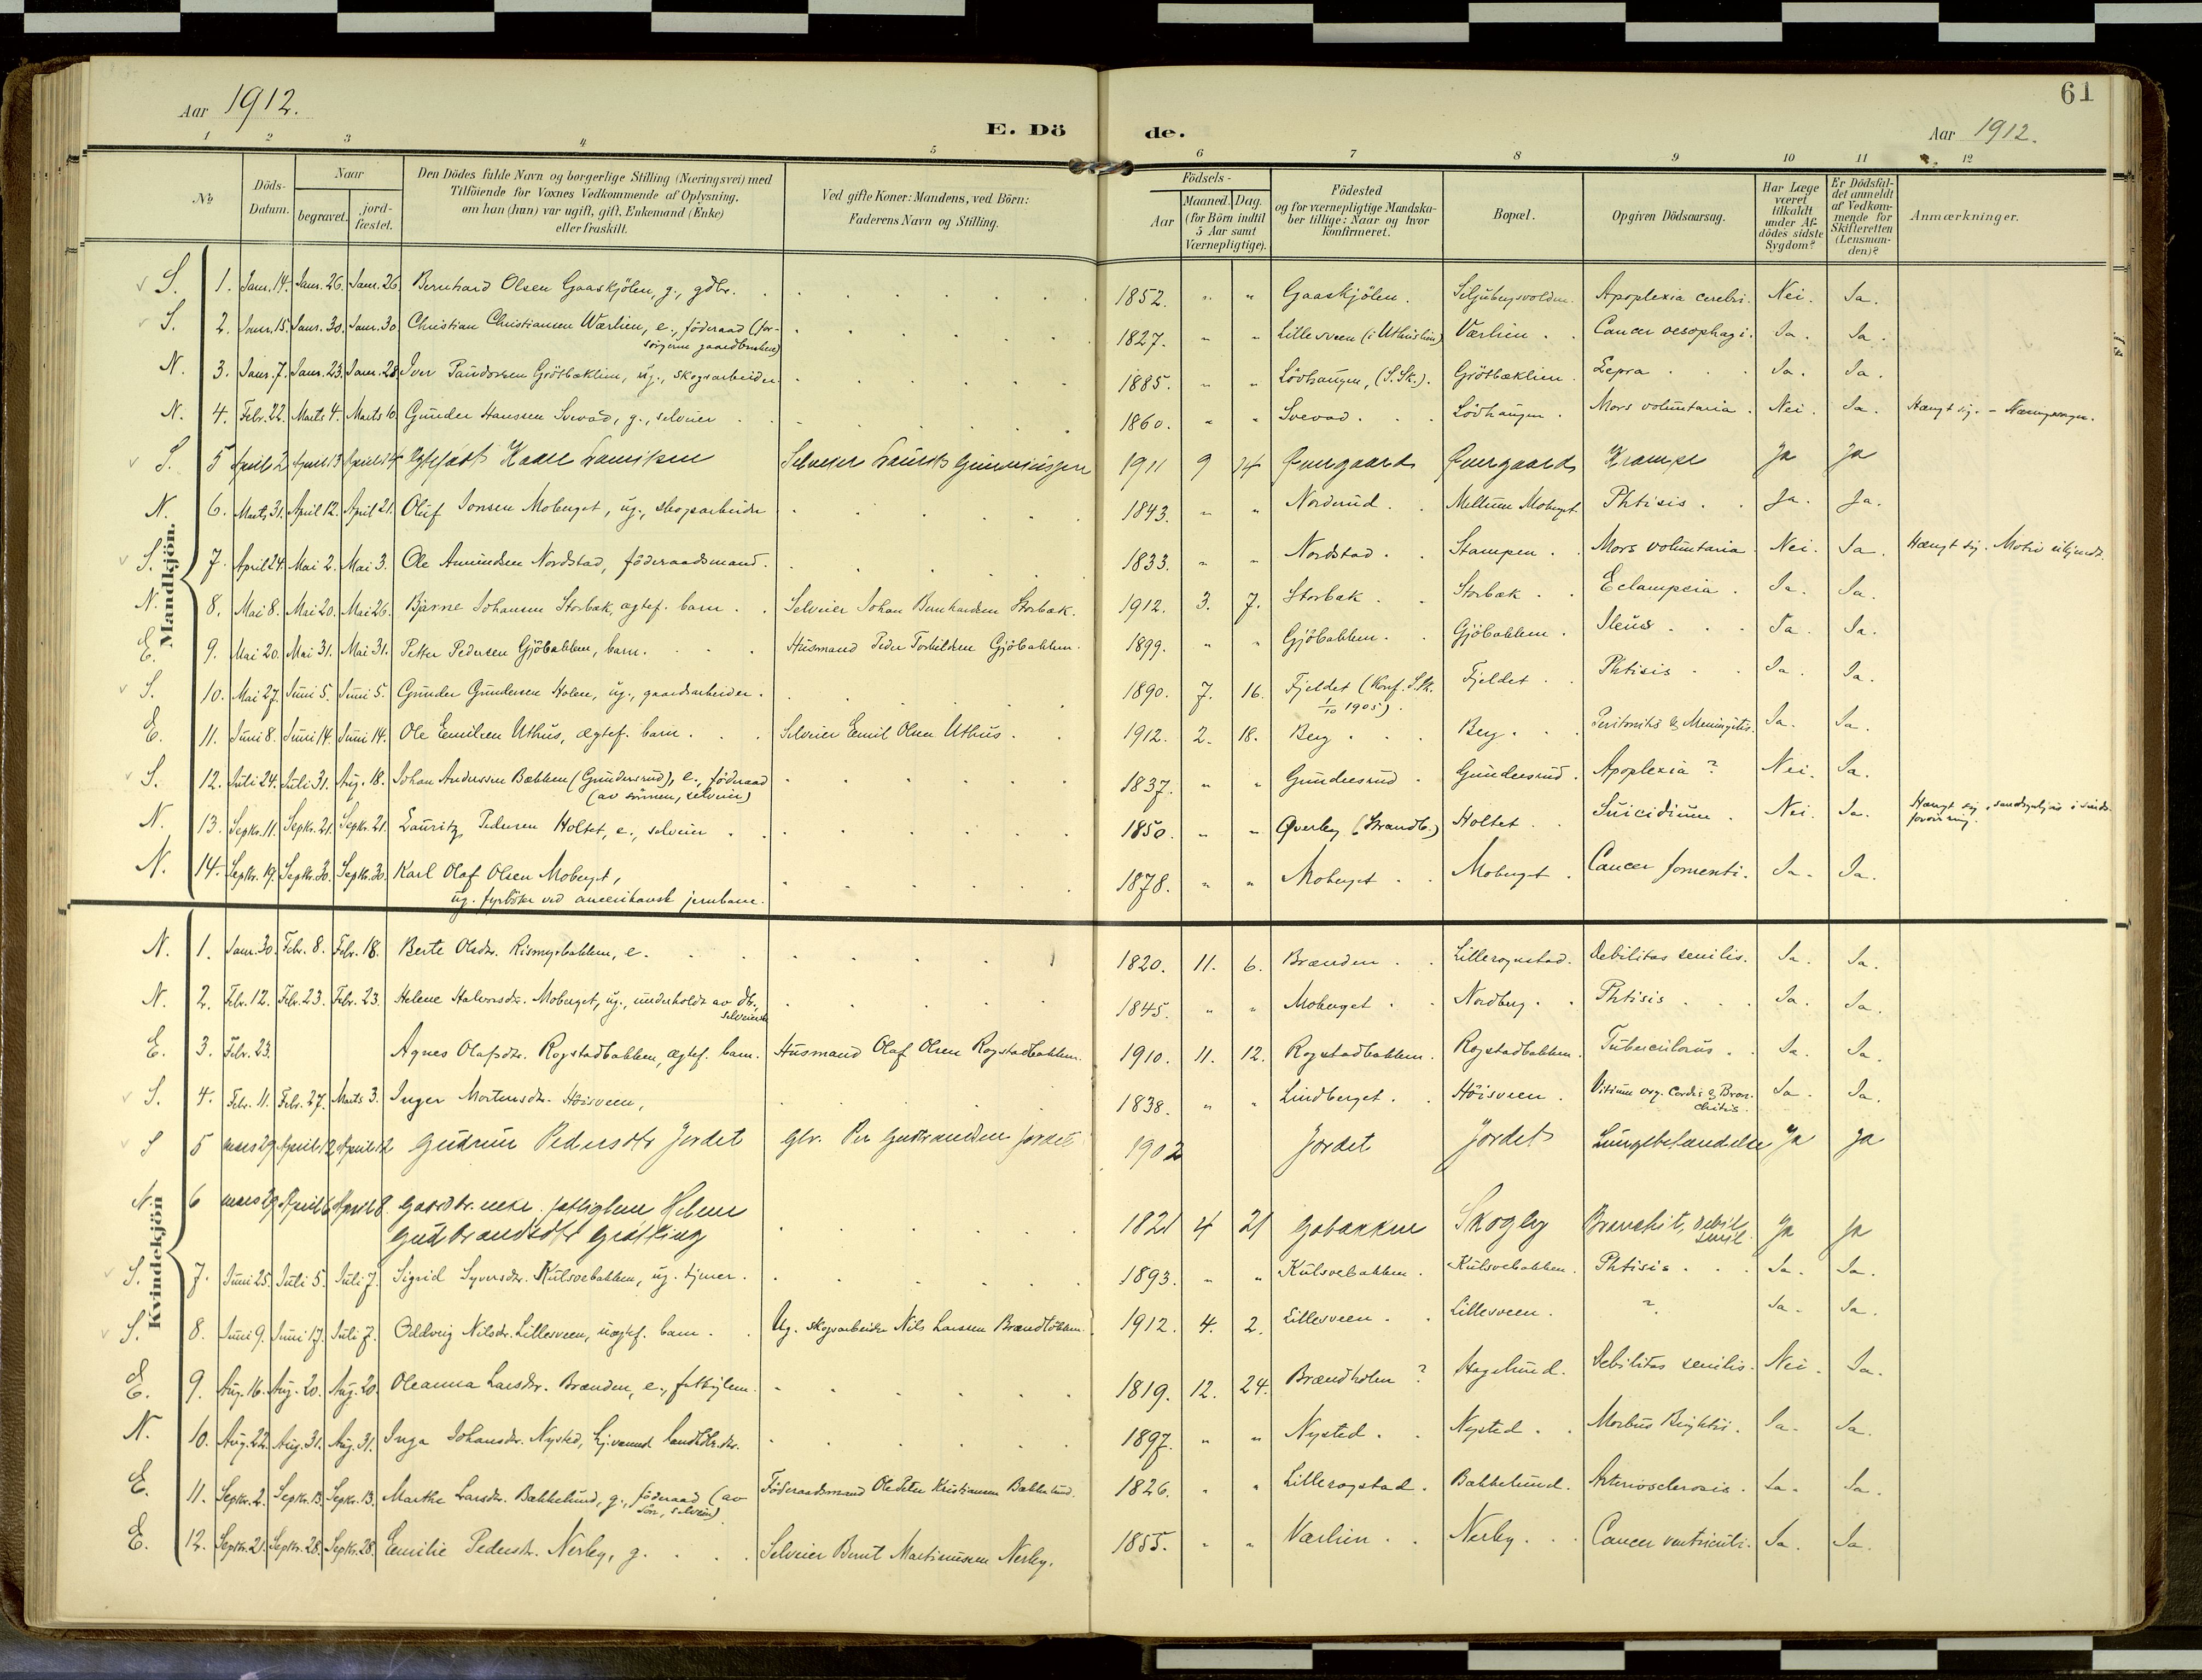 61
Aar 1912.
E. Dö de.
Aar 1912.
1 2 3 4 5 6 7 8 9 10 11 12
№
Döds-Datum.
Naar
begravet.
jord-fæstet.
Den Dödes fulde Navn og borgerlige Stilling (Næringsvei) med
Tilföiende for Voxnes Vedkommende af Oplysning,
om han (hun) var ugift, gift, Enkemand (Enke)
eller fraskilt.
Ved gifte Koner: Mandens, ved Börn:
Faderens Navn og Stilling.
Födsels-
Aar
Maaned. Dag.
(for Börn indtil
5 Aar samt
Værnepligtige).
Födested
og for værnepligtige Mandska-
ber tillige: Naar og hvor
konfirmeret.
Bopæl.
Opgiven Dödsaarsag.
Har Læge
været
tilkaldt
under Af-
dödes sidste
Sygdom?
Er Dödsfal-
det anmeldt
af Vedkom-
mende for
Skifteretten
(Lensman-
den)?
Anmærkninger.
Mandkjön.
S. 1. Janr. 14. Janr. 26. Janr. 26. Bernhard Olsen Gaaskjölen, g., gdbr. 1852. " " Gaaskjölen. Apoplexia cerebri. Nei. Ja.
S. 2. Janr. 15. Janr. 30. Janr. 30. Christian Christiansen Wærlien, e., föderaad (for-
sörgerne gaardbrukere) 1827. " " Lillesveen Værlien. Cancer oesophagi. Ja. Ja.
N. 3. Janr. 7. Janr. 23. Janr. 28. Iver Grötbæklien, ug., skogsarbeider 1885. " " Lövhaugen, (S. Sk.). Grötbæklien. Lepra. Ja. Ja.
N. 4. Febr. 22. Marts 4. Marts 10. Gunder Hanssen Svevad, g., selveier 1860. " " Svevad. Lövhaugen. Mors voluntaria. Nei. Ja. Hængt sig.
S. 5 April 2 April 13 April 14 Kaare Lauritsen Selveier Laurits Guneriussen 1911 9 14 Øvergaard Øvergaard Krampe Ja Ja
N. 6. Marts 31. April 12. April 21. Oluf Jonsen Moberget, ug., skogsarbeider 1843. " " Norderud. Mellum Moberget. Phtisis. Ja. Ja.
S. 7. April 24. Mai 2. Mai 3. Ole Amundsen Nordstad, föderaadsmand. 1833. " " Nordstad. Stampen. Mors voluntaria. Nei. Ja. Hængt sig. Motiv ukjendt.
N. 8. Mai 8. Mai 20. Mai 26. Bjarne Johansen Storbæk, ægtef. barn. Selveier Johan Bernhardsen Storbæk. 1912. 3. 7. Storbæk. Storbæk. Eclampsia. Ja. Ja.
E. 9. Mai 20. Mai 31. Mai 31. Petter Pedersen Gjöbakken, barn. Husmand Peder Torkildsen Gjöbakken. 1899. " " Gjöbakken. Gjöbakken. Ileus. Ja. Ja.
S. 10. Mai 27. Juni 5. Juni 5. Gunder Gundersen Holen, ug., gaardsarbeider. 1890. 7. 16. Fjeldet (Konf. S. Sk.
1/10 1905). Fjeldet. Phtisis. Ja. Ja.
E. 11. Juni 8. Juni 14. Juni 14. Ole Emilsen Uthus, ægtef. barn. Selveier Emil Olsen Uthus. 1912. 2. 18. Berg. Berg. Peritonitis & Meningitis. Ja. Ja.
S. 12. Juli 24. Juli 31. Aug. 18. Johan Anderssen Bækken (Gundersrud), e., föderaad
(av sönnen, selveier) 1837. " " Gundersrud. Gundersrud. Apoplexia? Nei. Ja.
N. 13. Septbr. 11. Septbr. 21. Septbr. 21. Lauritz Pedersen Holtet, e., selveier 1850. " " Øverby (Strandb.) Holtet. Suicidium. Nei. Ja. Hængt sig, sandsynligvis i sinds-
forvirring.
N. 14. Septbr. 19. Septbr. 30. Septbr. 30. Karl Olaf Olsen Moberget,
ug. fyrböter ved amerikansk jernbane. 1878. " " Moberget. Moberget. Cancer Ja. Ja.
Kvindekjön
N. 1. Janr. 30. Febr. 8. Febr. 18. Berte Olsdtr. Rismyrbakken, e. 1820. 11. 6. Brænden. Lillerogstad. Debilitas senilis. Ja. Ja.
N. 2. Febr. 12. Febr. 23. Febr. 23. Helene Halvorsdtr. Moberget, ug., underholdt av db.,
selveierske 1845. " " Moberget. Nordberg. Phtisis. Ja. Ja.
E. 3. Febr. 23. Agnes Olafsdtr. Rogstadbakken, ægtef. barn. Husmand Olaf Olsen Rogstadbakken. 1910. 11. 12. Rogstadbakken. Rogstadbakken. Tuberculosis. Ja. Ja.
S. 4. Febr. 11. Febr. 27. Marts 3. Inger Mortensdtr. Höisveen, 1838. " " Lindberget. Höisveen. Vitium org. Cordis & Bron-
chitis. Ja. Ja.
S 5 mars 29 April 12 April 12 Gudrun Pedersdtr Jordet Gbr. Per Gudbrandsen Jordet 1902 Jordet Jordet Lungebetændelse Ja Ja
N. 6 mars 29 April 6 April 8 Gaardbr. enke. fattiglem Helene
Gudbrandsdtr Grötting 1821 4 21 Gobakken Skogby Bronchit, debil.
senil. Ja Ja
S. 7. Juni 25. Juli 5. Juli 7. Sigrid Syversdtr. Kulsvebakken, ug. tjener. 1893. " " Kulsvebakken. Kulsvebakken. Phtisis. Ja. Ja.
S. 8. Juni 9. Juni 17. Juli 7. Oddveig Nilsdtr. Lillesveen, uægtef. barn. Ug. skogsarbeider Nils Larssen Brændbakken. 1912. 4. 2. Lillesveen. Lillesveen. ? Ja. Ja.
E. 9. Aug. 16. Aug. 20. Aug. 20. Oleanna Larsdtr. Brænden, e., fattiglem. 1819. 12. 24. Brændholen? Hagelund. Debilitas senilis. Nei. Ja.
N. 10. Aug. 22. Aug. 31. Aug. 31. Inga Johansdtr. Nysted, 1897. " " Nysted. Nysted. Morbus Brightii. Ja. Ja.
E. 11. Septbr. 2. Septbr. 13. Septbr. 13. Marthe Larsdtr. Bækkelund, g., föderaad (av
sön, selveier) Föderaadsmand Ole Peter Kristiansen Bækkelund. 1826. " " Lillerogstad. Bækkelund. Arteriosclerosis. Ja. Ja.
E. 12. Septbr. 21. Septbr. 28. Septbr. 28. Emilie Pedersdtr. Nerby, g. Selveier Bernt Martinussen Nerby. 1855. " " Værlien. Nerby. Cancer ventriculi. Ja. Ja.